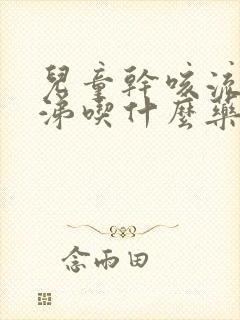 兒童幹咳流
涕喫什麼藥
念雨田